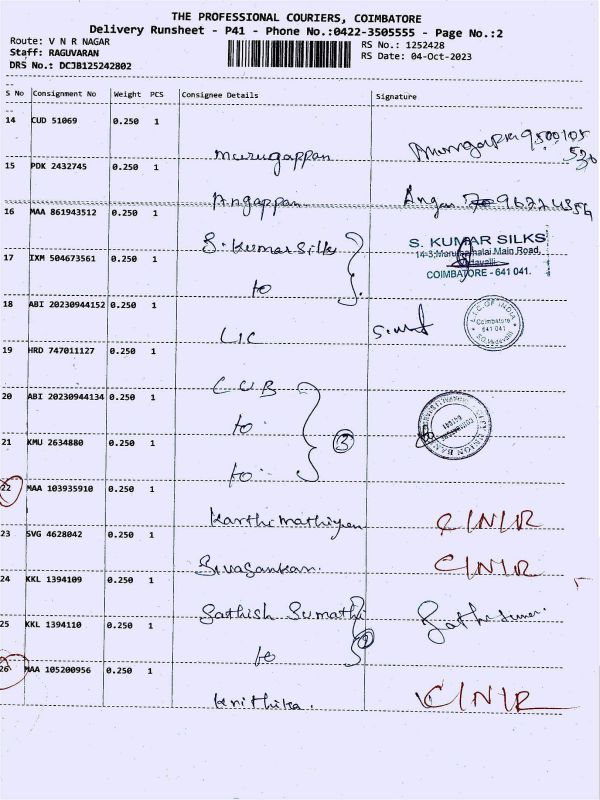 THE PROFESSIONAL COURIERS, COIMBATORE
Delivery Runsheet - P41 - Phone No.:0422-3505555 - Page No.:2
Route: V N R NAGAR
RS No.: 1252428
Staff: RAGUVARAN
RS Date: 04-Oct-2023
DRS No.: DCJB125242802
S No Consignment No Weight PCS Consignee Details Signature
14 CUD 51069 0.250 1
murugappan
15 PDK 2432745 0.250 1
Angappan
16 MAA 861943512 0.250 1
S. Kumar Silks
S. KUMAR SILKS
Main Road,
COIMBATORE - 641 041.
17 IXM 504673561 0.250 1
to
18 ABI 20230944152 0.250 1
LIC
L.I.C OF INDIA
Coimbatore
641 041
19 HRD 747011127 0.250 1
CUB
20 ABI 20230944134 0.250 1
to
3
21 KMU 2634880 0.250 1
to
22 MAA 103935910 0.250 1
C/N/R
23 SVG 4628042 0.250 1
Sivasankari.
C/N/R
24 KKL 1394109 0.250 1
Sathish Sumathi
25 KKL 1394110 0.250 1
to
2
26 MAA 105200956 0.250 1
Krithika.
C/N/R